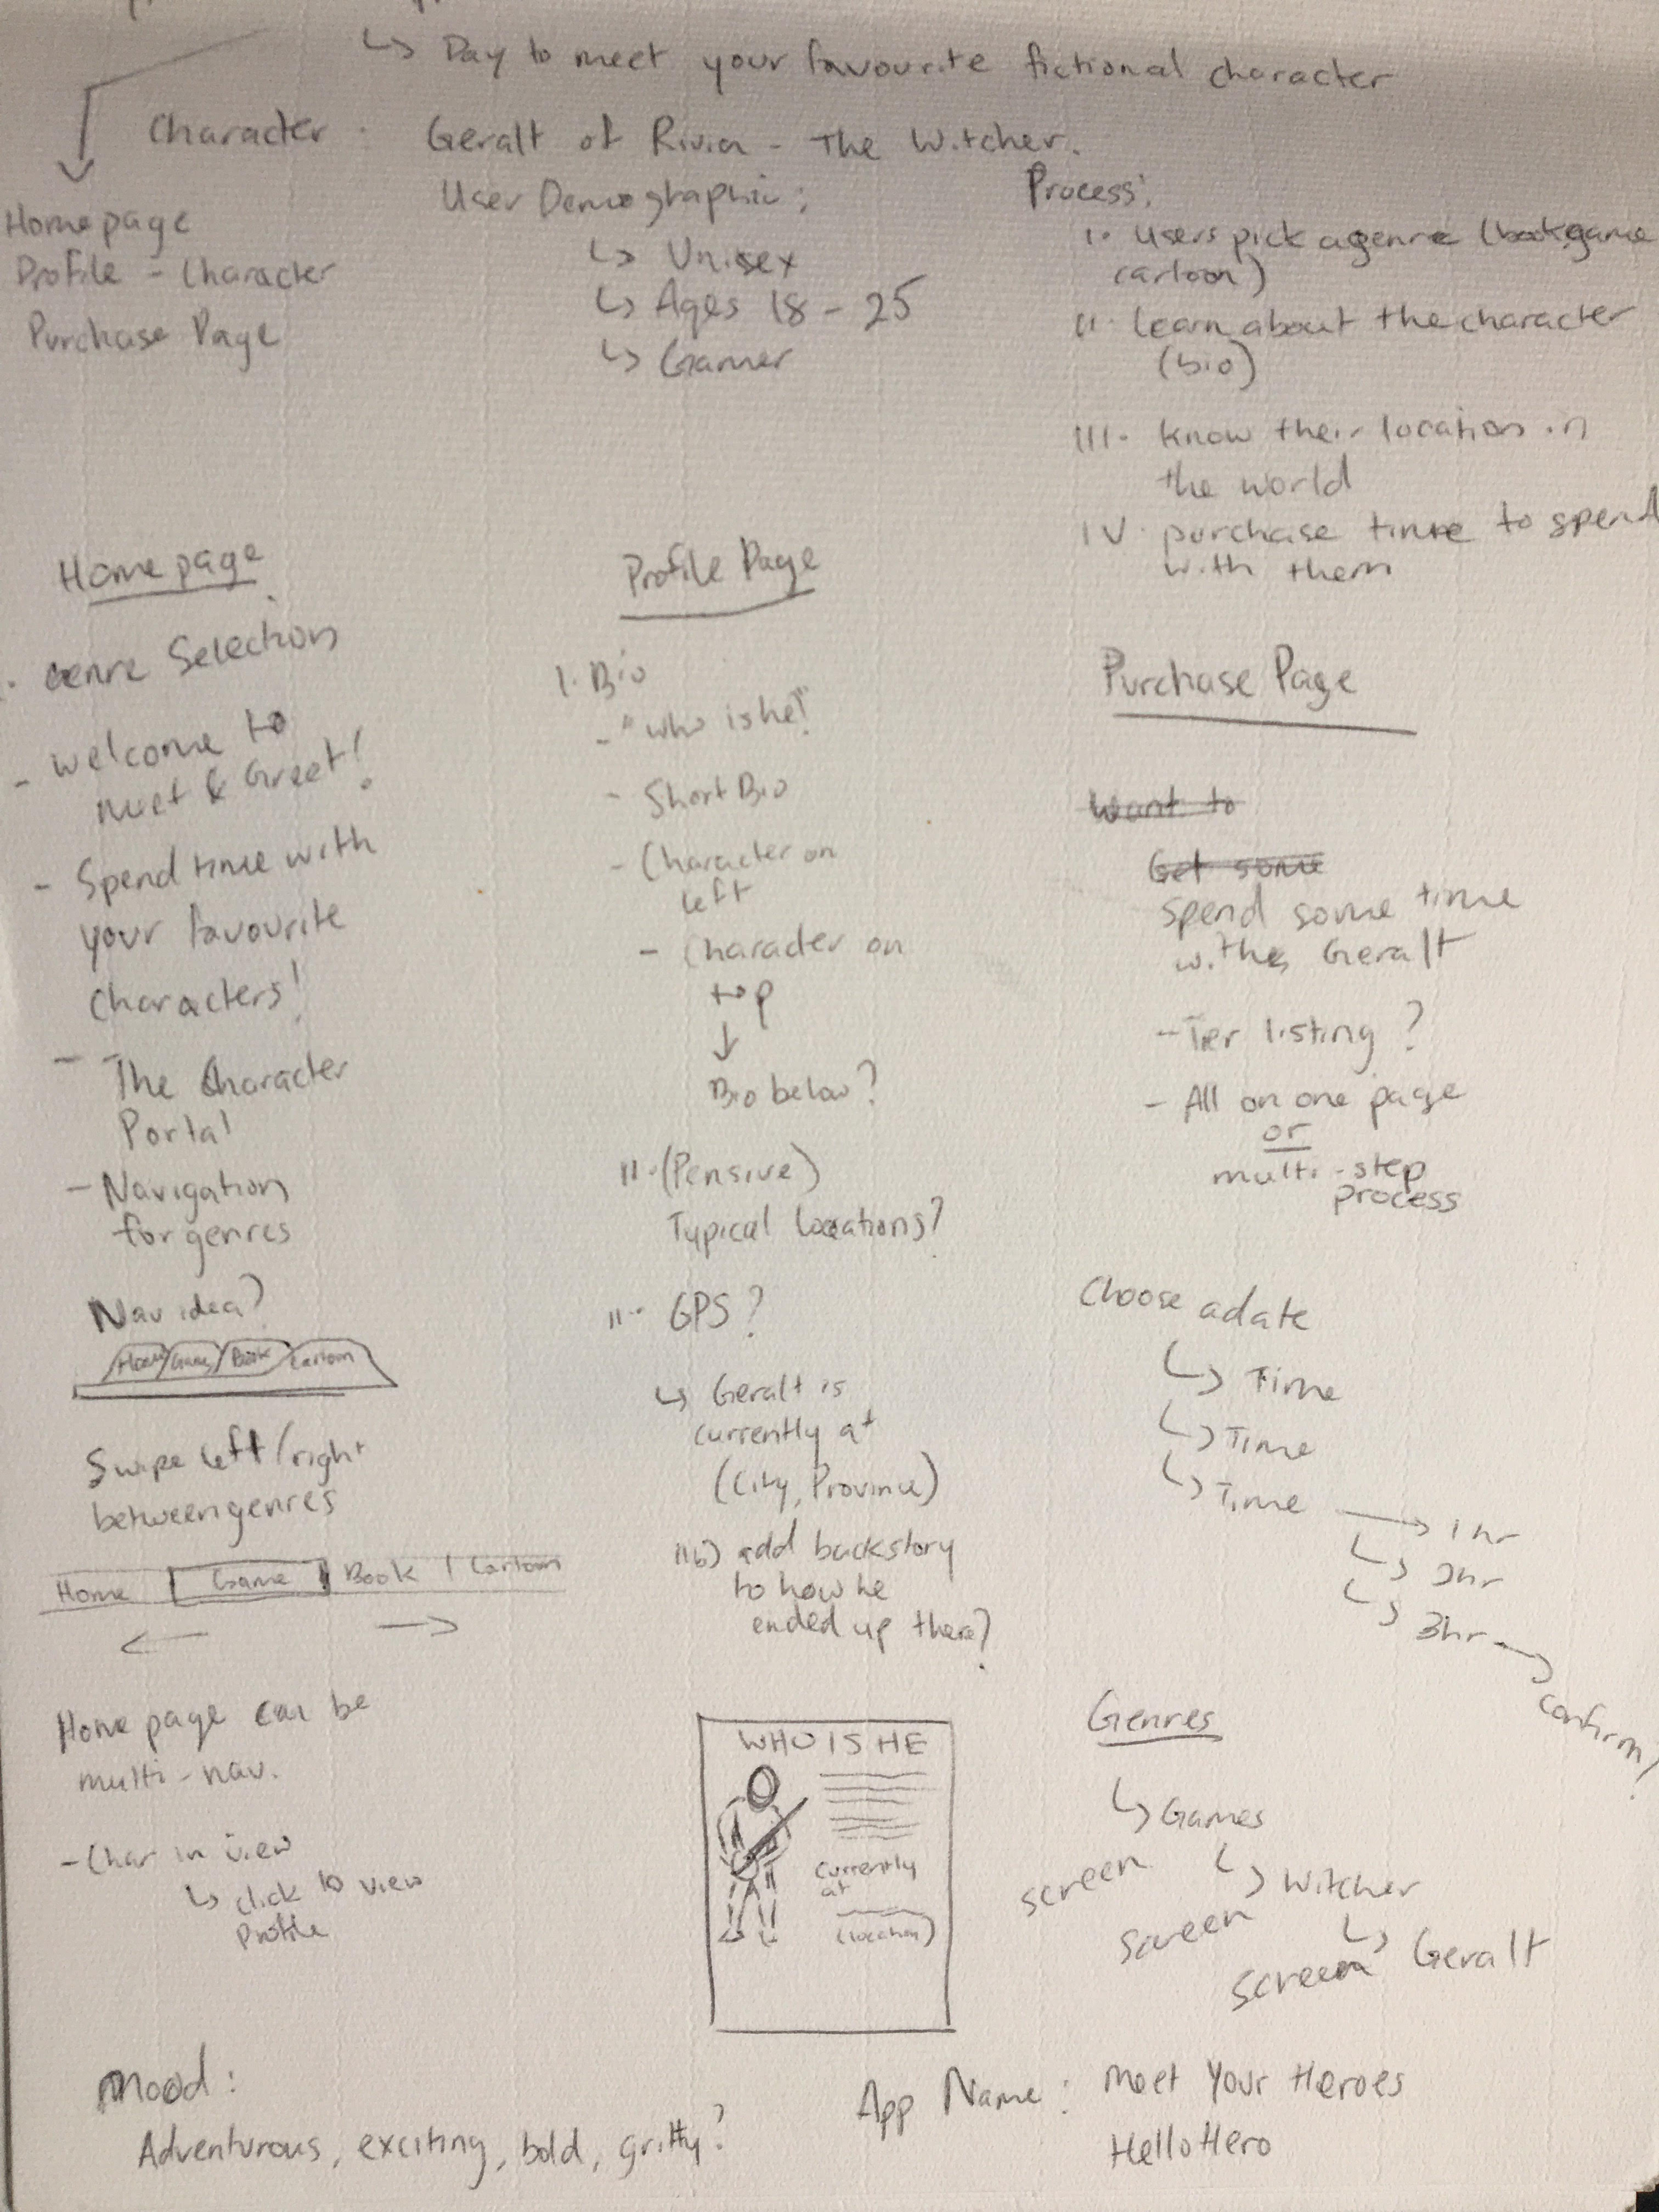 ↳ Day to meet your favourite fictional character
Character: Geralt of Rivia - The Witcher.
Homepage
Profile - Character
Purchase Page
User Demographic:
↳ Unisex
↳ Ages 18 - 25
↳ Gamer
Process:
I. Users pick a genre (book game
cartoon)
II. learn about the character
(bio)
III. know their location in
the world
IV. purchase time to spend
with them
Homepage
. Genre Selection
- Welcome to
Meet & Greet!
- Spend time with
your favourite
characters!
- The Character
Portal
- Navigation
for genres
Nav idea?
Home Game Book Cartoon
Swipe left/right
between genres
Home | Game | Book | Cartoon
← →
Home page can be
multi-nav.
- Char in view
↳ click to view
profile
Profile Page
I. Bio
- "who is he?"
- Short Bio
- Character on
left
- Character on
top
↓
Bio below?
II. (Pensive)
Typical Locations?
II. GPS?
↳ Geralt is
currently at
(City, Province)
IIb) add backstory
to how he
ended up there?
WHO IS HE
Currently
at
(location)
Purchase Page
Want to
Get some
spend some time
with Geralt
- Tier listing?
- All on one page
or
multi-step
process
Choose a date
↳ Time
↳ Time
↳ Time → 1 hr
↳ 2hr
↳ 3hr → confirm?
Genres
↳ Games
screen ↳ Witcher
screen ↳ Geralt
screen
Mood:
Adventurous, exciting, bold, gritty?
App Name: Meet Your Heroes
HelloHero